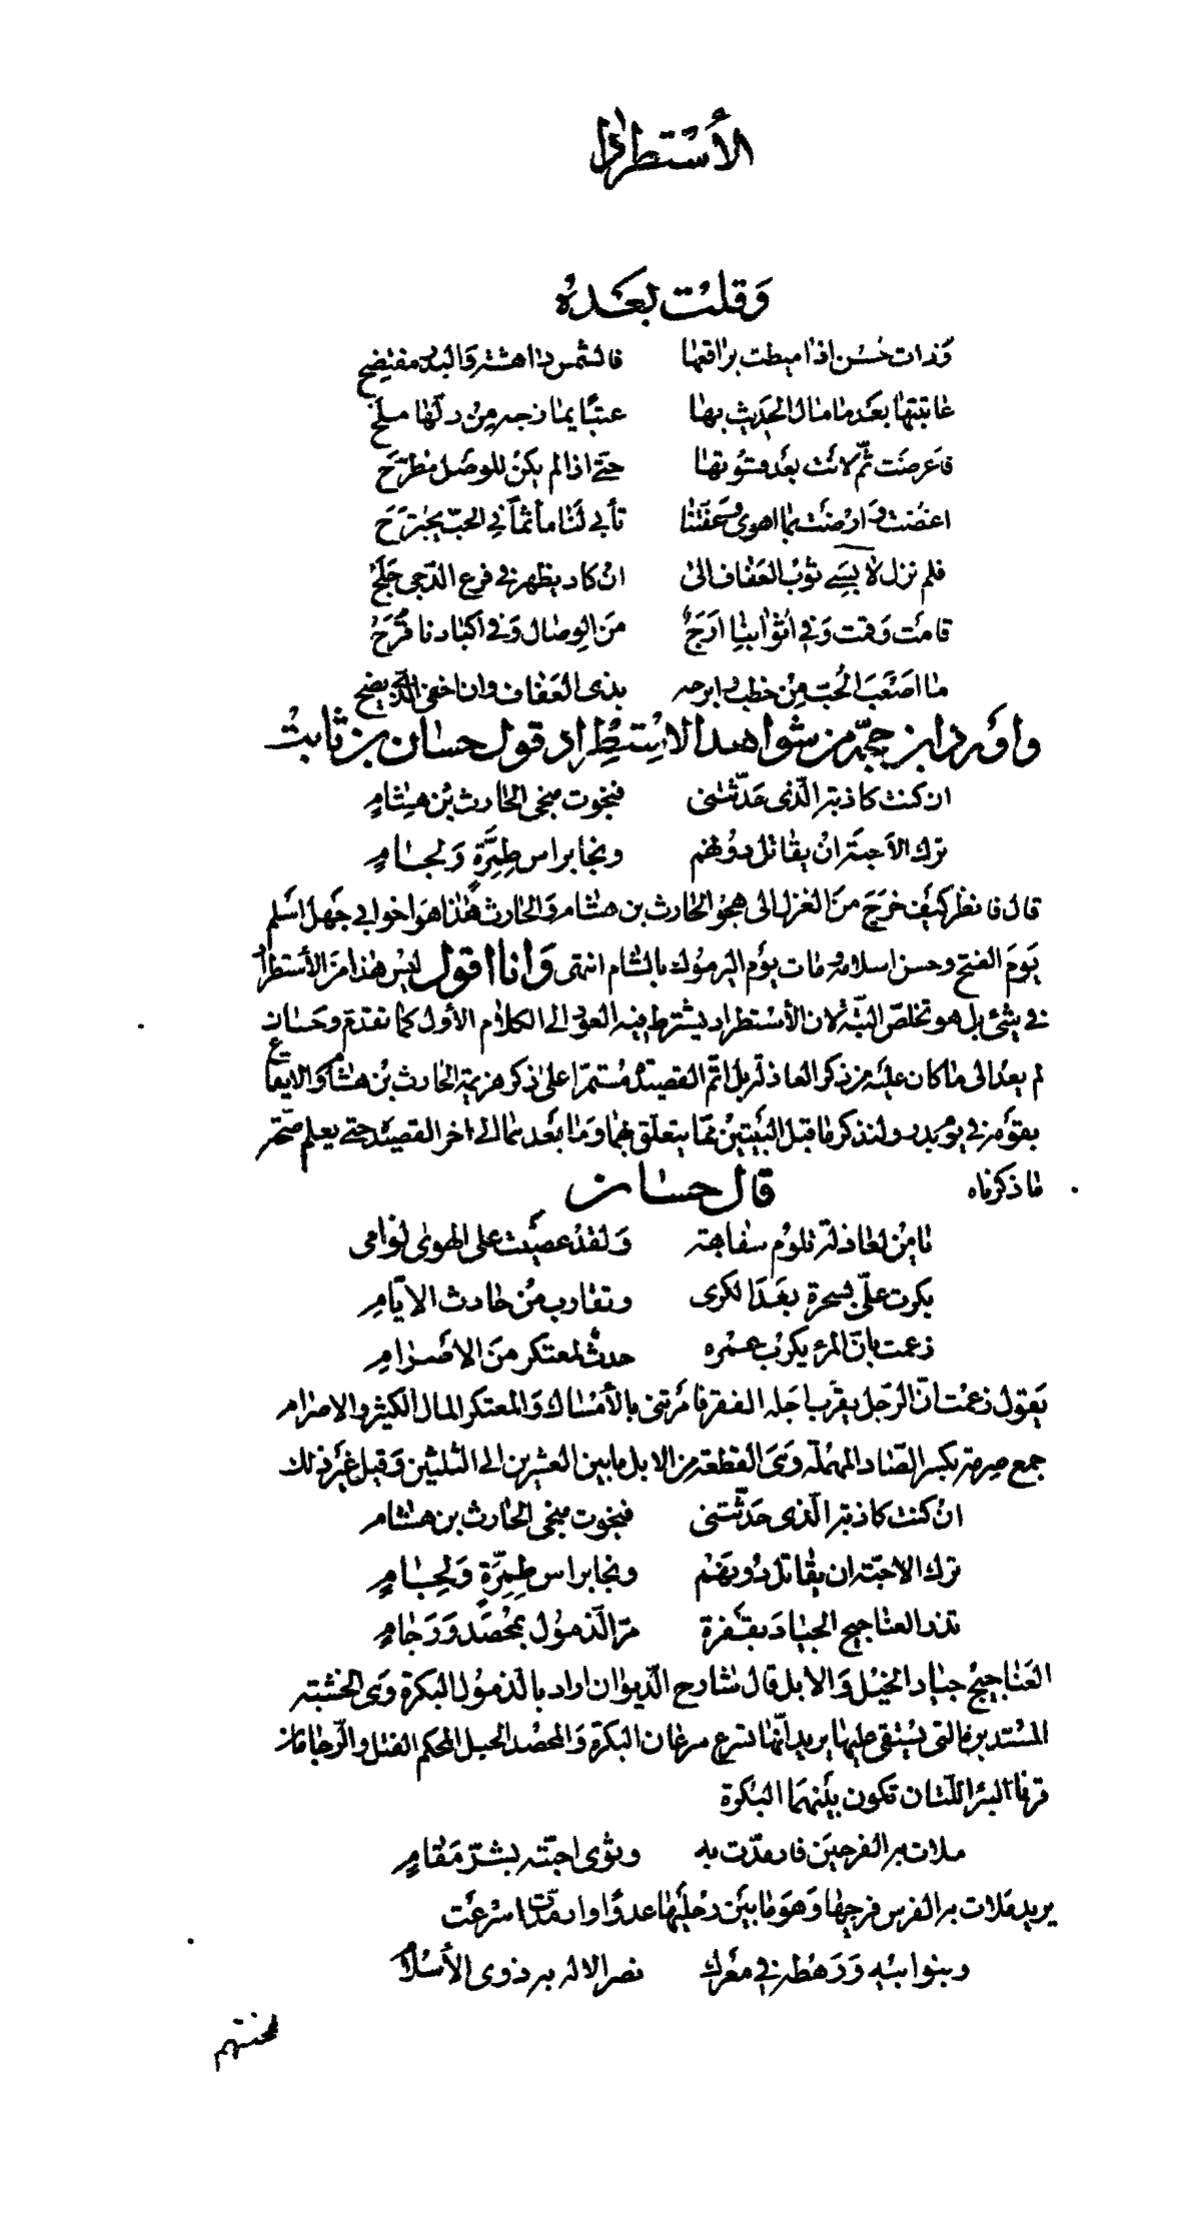 الأستطراد
وقلت بعده
وذات حسن اذا ميطت براقعها فالشمس داهشة والبدر مفتضح
عاتبتها بعدما مال الحديث بها عتبًا يمازجه من دلّها ملح
فاعرضت ثمّ لانت بعد قسوتها حتّى اذا لم يكن للوصل مطّرح
اغضت وارضت بما اهوى وعفّتنا تأبى لنا مأثماً في الحبّ يجترح
فلم نزل لابسي ثوب العفاف الى ان كاد يظهر في فرع الدّجى جلح
قامت وقمت وفي اثوابنا ارج من الوصال وفي اكبادنا قرح
ما اصعب الحبّ من خطب وابرحه بذى العفاف وان اخفى الّذى يضح
واورد ابن حجّة من شواهد الاستطراد قول حسان بن ثابت
ان كنت كاذبة الّذى حدّثتنى فنجوت منجى الحارث بن هشام
ترك الاحبّة ان يقاتل دونهم ونجا براس طمرّة ولجام
قال فانظر كيف خرج من الغزل الى هجو الحارث بن هشام والحارث هذا هو اخو ابي جهل اسلم
يوم الفتح وحسن اسلامه ومات يوم اليرموك بالشام انتهى وانا اقول ليس هذا من الأستطراد
في شئ بل هو تخلّص البتّة لان الأستطراد يشترط فيه العود الى الكلام الأول كما تقدّم وحسان
لم يعد الى ما كان عليه من ذكر العاذلة بل اتم القصيدة مستمرّا على ذكر هزيمة الحارث بن هشام والايقاع
بقومه في يوم بدر ولنذكر ما قبل البيتين ممّا يتعلّق بهما وما بعدهما الى اخر القصيدة حتى يعلم صحّة
ما ذكرناه قال حسان
يا من لعاذلة تلوم سفاهة ولقد عصيت على الهوى لوّامى
بكرت علىّ بسحرة بعد الكرى وتقارب من حادث الايّام
زعمت بانّ المرء يكرب عمره حدث لمعتكر من الاصرام
يقول زعمت انّ الرّجل يقرّب اجله الفقر فامرتنى بالأمساك والمعتكر المال الكثير والاصرام
جمع صرمة بكسر الصّاد المهملة وهى القطعة من الابل ما بين العشرين الى الثلثين وقيل غير ذلك
ان كنت كاذبة الّذى حدّثتنى فنجوت منجى الحارث بن هشام
ترك الاحبّة ان يقاتل دونهم ونجا براس طمرّة ولجام
تذر العناجيج الجياد بقفرة مرّ الّذمول بمحصد ورجام
العناجيج جياد الخيل والابل قال شارح الدّيوان اراد بالذمول البكرة وهى الخشبة
المستديرة التى يستقى عليها يريد انّها تسرع سرعان البكرة والمحصد الحبل المحكم الفتل والرّجامان
قرنا البئر اللّتان تكون بينهما البكرة
ملات به الفرجين فارمدّت به وثوى احبّته بشرّ مقام
يريد ملات به الفرس فرجيها وهو ما بين رجليها عدوًا وارمدّت اسرعت
وبنوا ابيه ورهطه في معرك نصر الاله به ذوى الأسلام